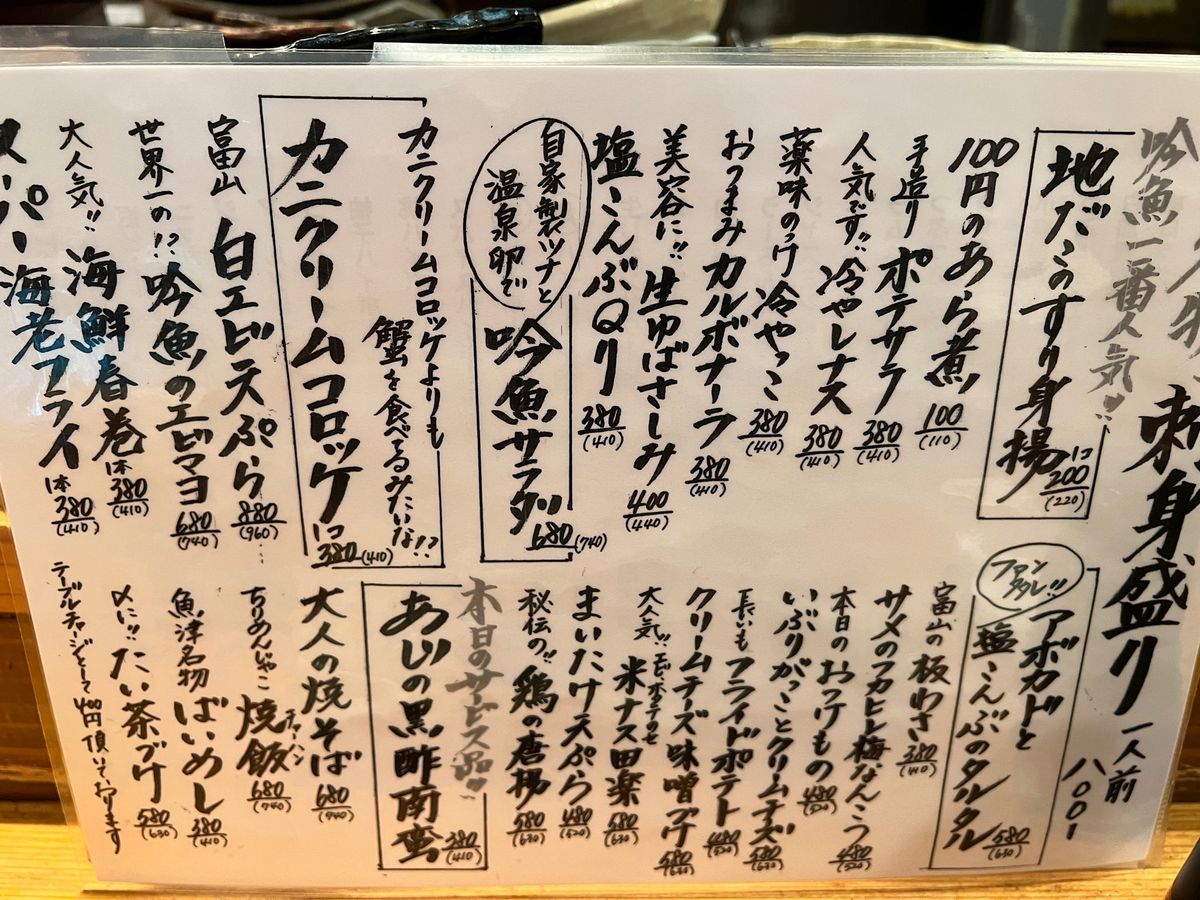 吟魚一番人気!!
刺身盛り 一人前
八〇〇1
地だこのすり身揚 1コ 200 (220)
100円のあら煮 100 (110)
手造り ポテサラ 380 (410)
人気です!! 冷やしナス 380 (410)
薬味のっけ 冷やっこ 380 (410)
おつまみ カルボナーラ 380 (410)
美容に!! 生ゆばさしみ 400 (440)
塩こんぶQり 380 (410)
自家製ツナと
温泉卵で
吟魚サラダ 680 (740)
カニクリームコロッケよりも
蟹を食べてるみたいな!?
カニクリームコロッケ 1コ 380 (410)
富山 白エビ天ぷら 880 (960)
世界一の!? 吟魚のエビマヨ 680 (740)
大人気!! 海鮮春巻 1本 380 (410)
スーパー海老フライ 1本 380 (410)
ファン
多し!!
アボカドと
塩こんぶのタルタル 580 (630)
富山の 板わさ 380 (410)
サメのフカヒレ梅なんこつ 480 (520)
本日の おつけもの 480 (520)
いぶりがっことクリームチーズ 580 (630)
長いも フライドポテト 480 (520)
クリームチーズ味噌づけ 580 (630)
大人気!! 米ナス田楽 580 (630)
まいたけ天ぷら 480 (520)
秘伝の!! 鶏の唐揚 580 (630)
本日のサービス品!!
あじの黒酢南蛮 380 (410)
大人の焼そば 680 (740)
ちりめんじゃこ 焼飯 チャーハン 680 (740)
魚津名物 ばいめし 380 (410)
〆に!! たい茶づけ 580 (630)
テーブルチャージとして 400円頂いております